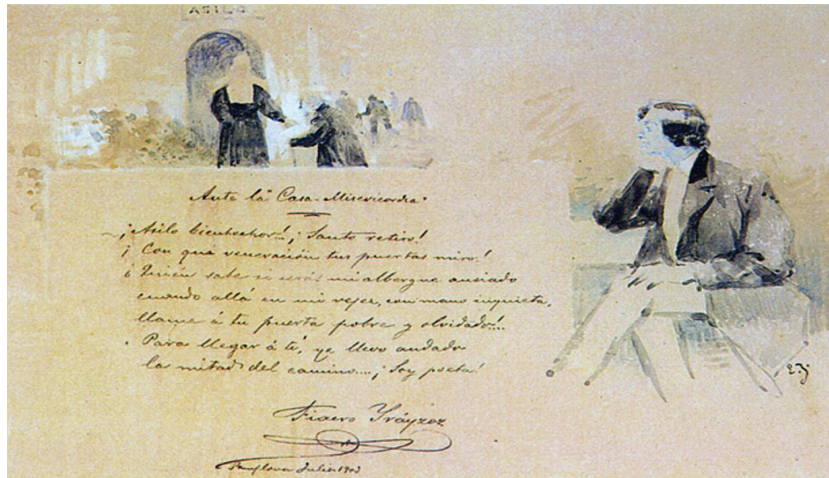 ASILO
Ante la Casa-Misericordia.
¡Asilo bienhechor! ¡Santo retiro!
¡Con qué veneración tus puertas miro!
¿Quién sabe si serás mi albergue ansiado
cuando allá en mi vejez, con mano inquieta,
llame á tu puerta pobre y olvidado!...
Para llegar á tí, ya llevo andado
la mitad del camino.... ¡Soy poeta!
Fiacro Yráyzoz
Pamplona Julio 1903